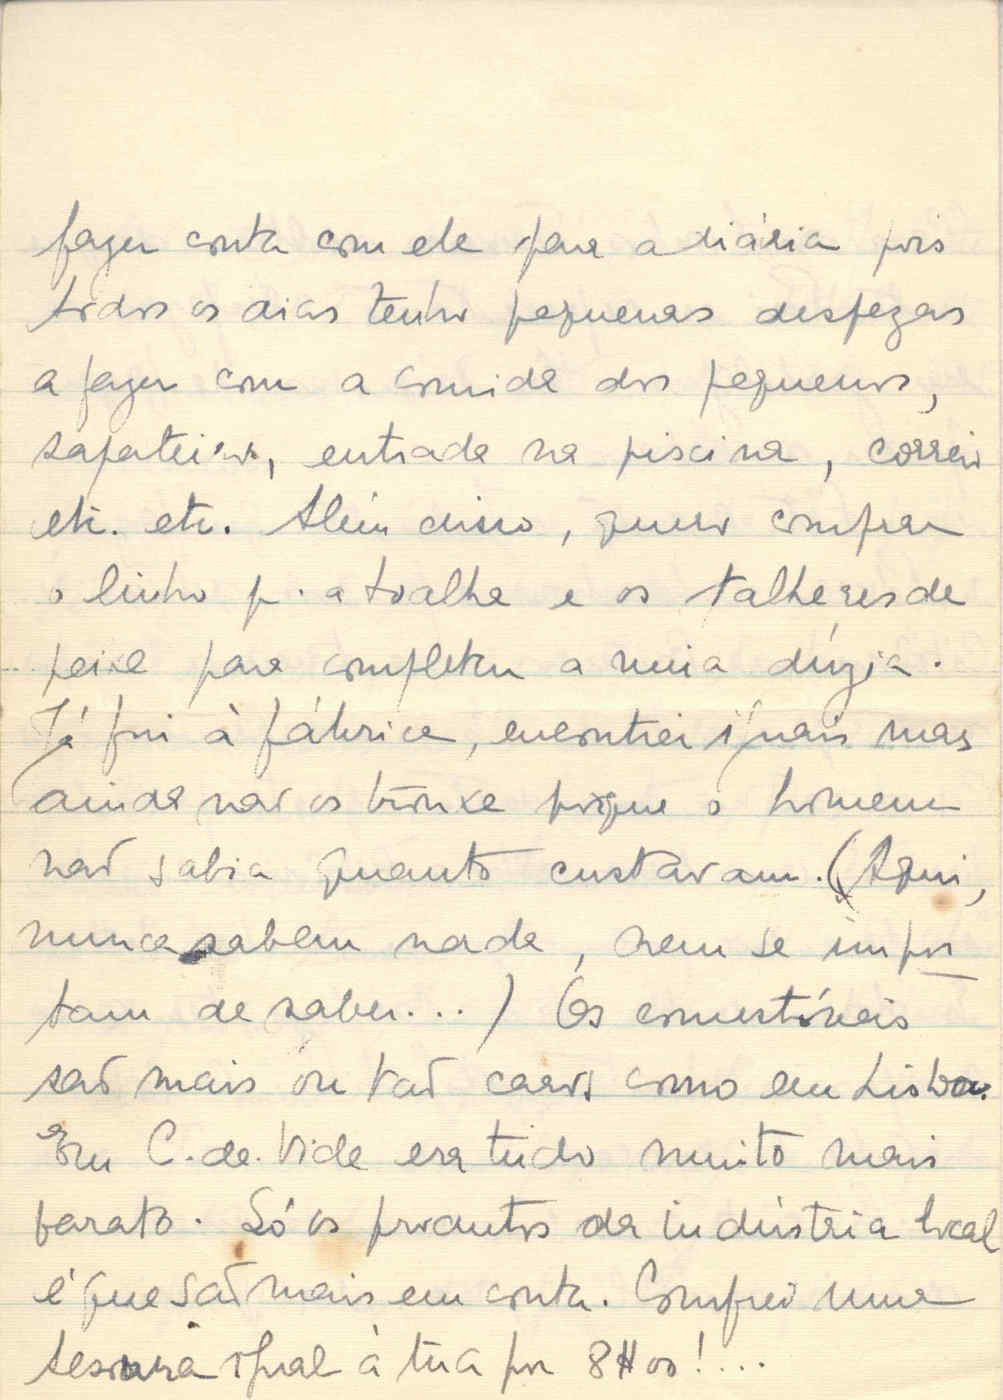 fazer conta com ele para a diária pois
todos os dias tenho pequenas despezas
a fazer com a comida dos pequenos,
sapateiro, entrada na piscina, correio
etc. etc. Além disso, quero comprar
o linho p. a toalha e os talheres de
peixe para completar a meia dúzia.
Já fui à fábrica, encontrei iguais mas
ainda não os trouxe porque o homem
não sabia quanto custavam. (Aqui,
nunca sabem nada, nem se impor
tam de saber...) Os comestíveis
são mais ou tão caros como em Lisboa.
Em C. de Vide era tudo muito mais
barato. Só os produtos da indústria local
é que são mais em conta. Comprei uma
tesoura igual à tua por 8$00!...